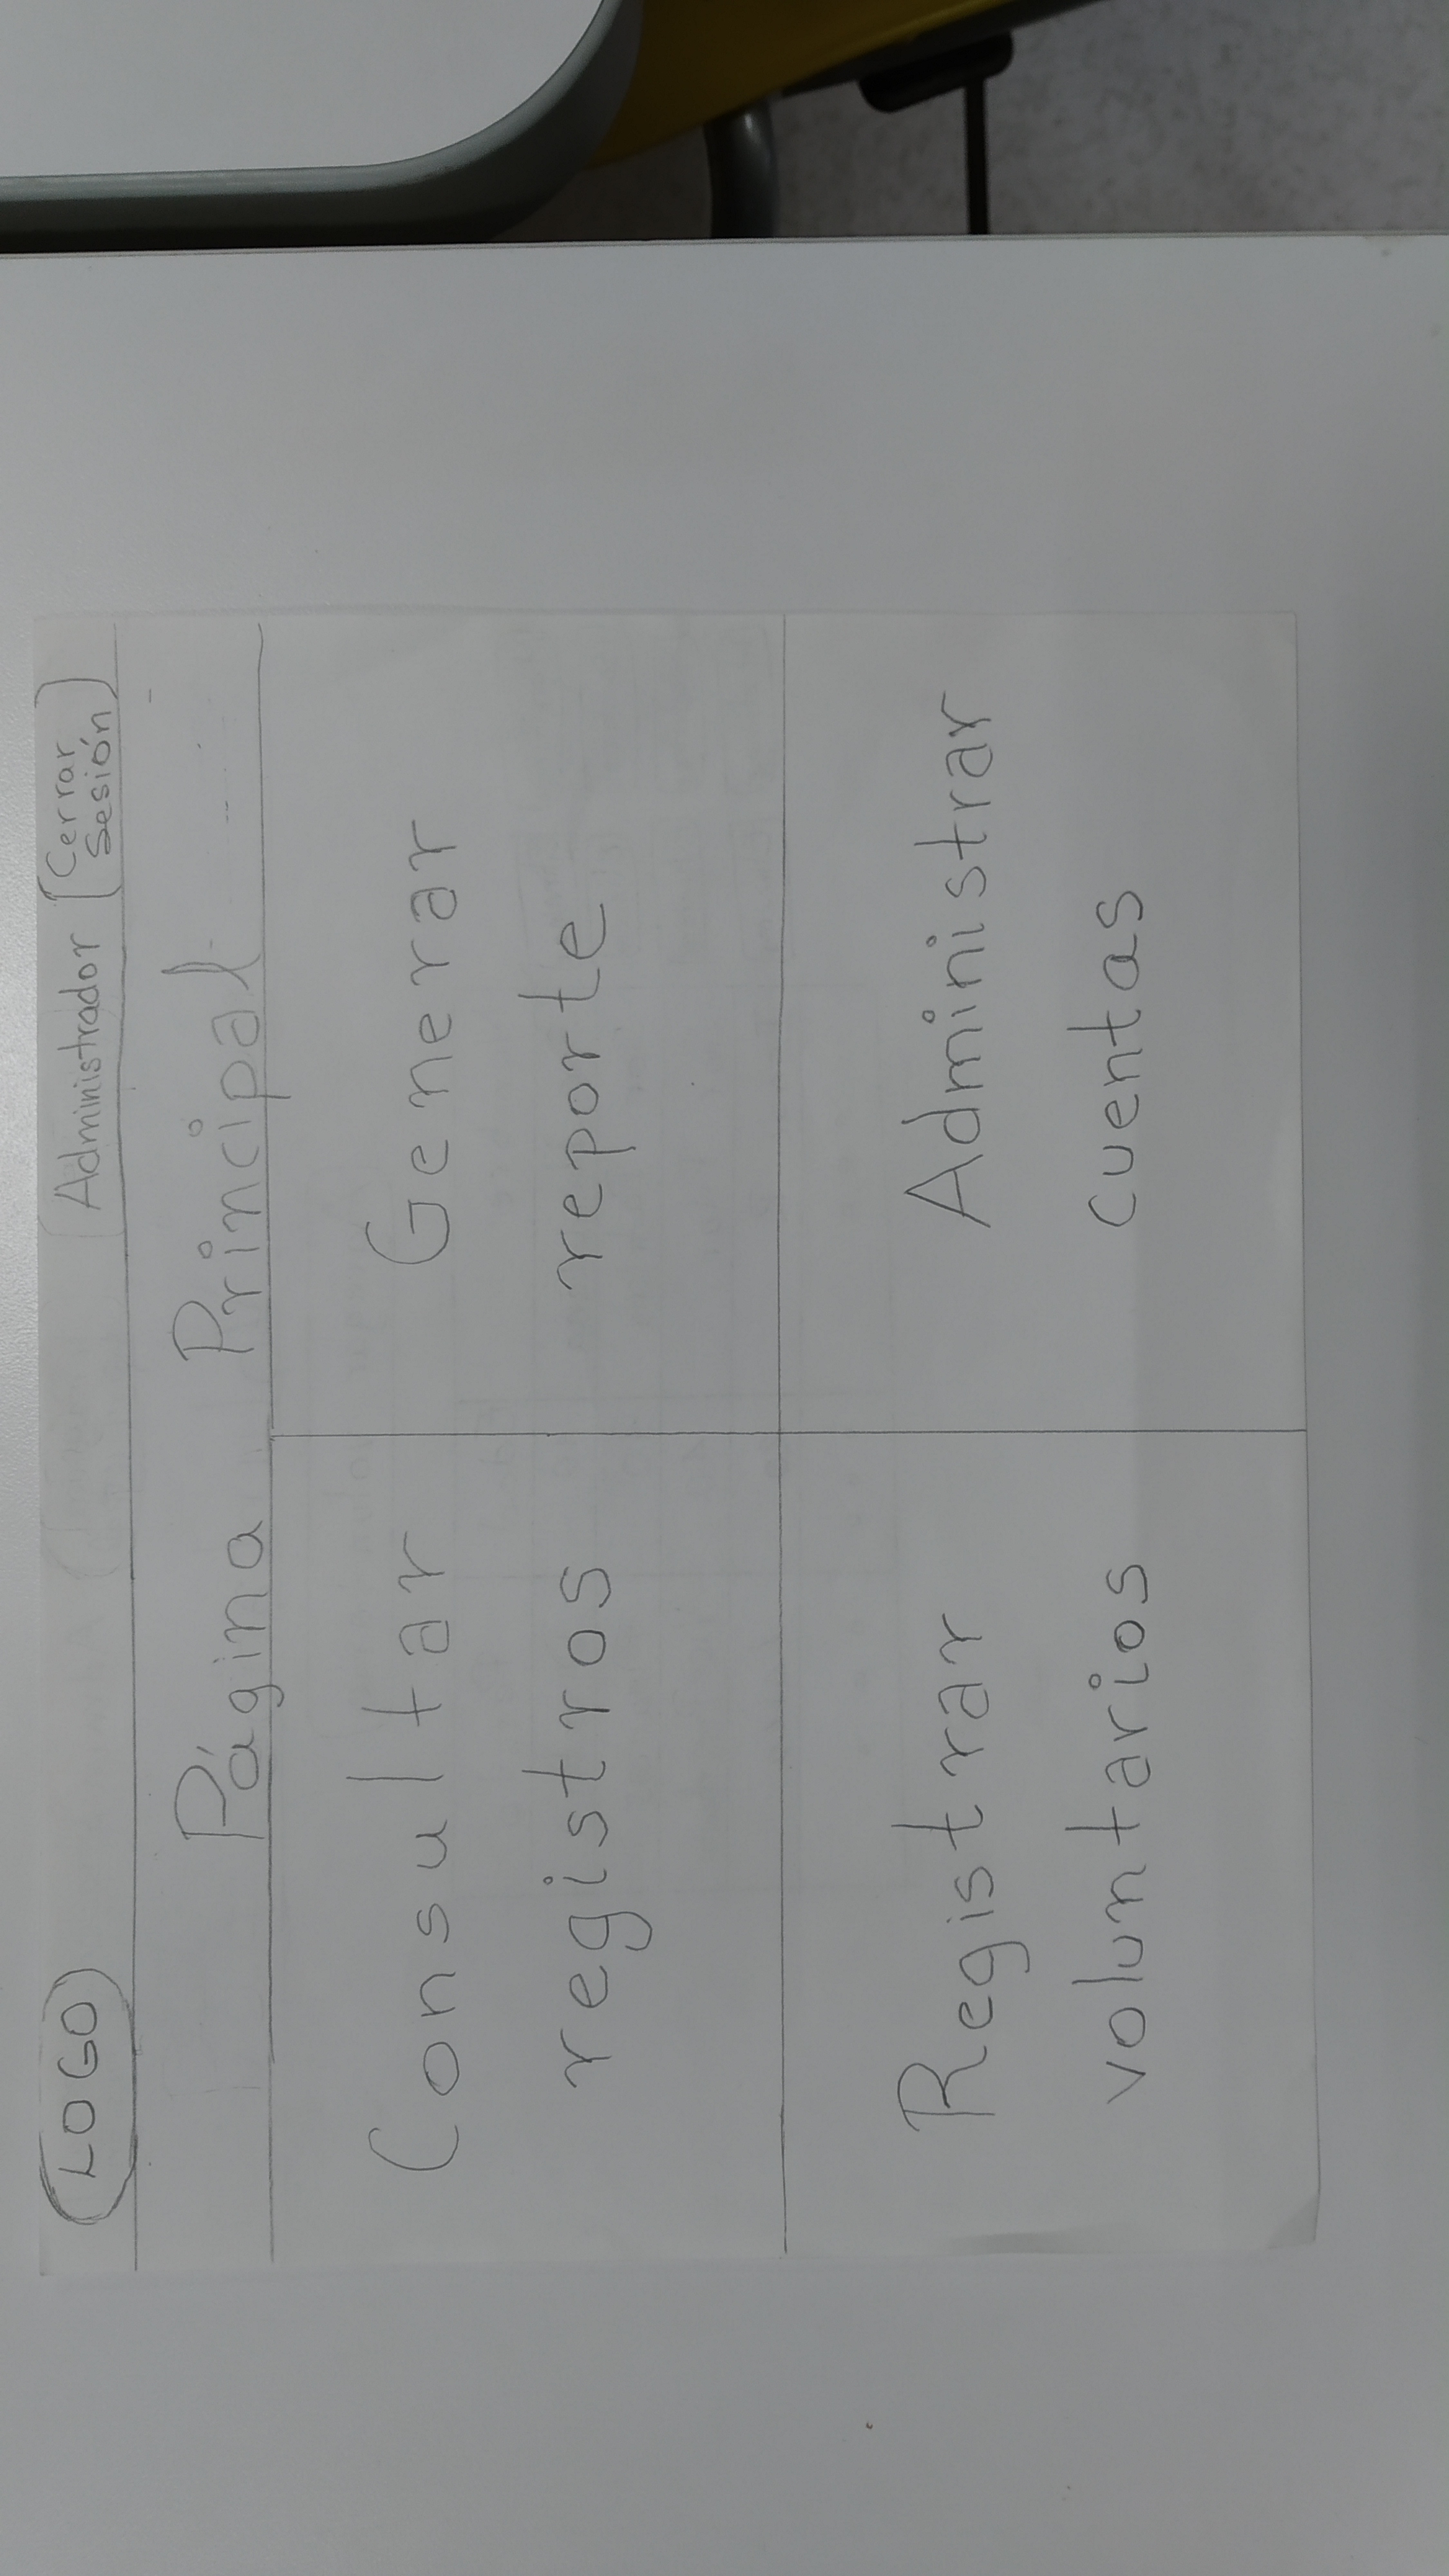 LOGO Administrador Cerrar
Sesión
Página Principal
Consultar
registros
Generar
reporte
Registrar
voluntarios
Administrar
cuentas